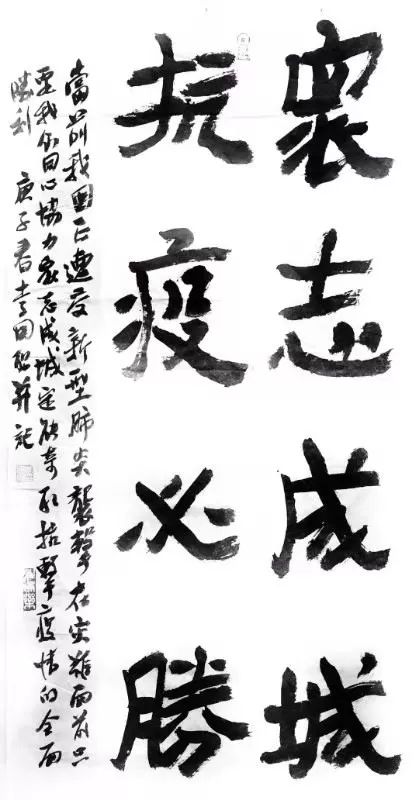 衆志成城
抗疫必勝
當前我國正遭受新型肺炎襲擊在災難面前只
要我们同心協力衆志成城定能奪取抗擊疫情的全面
勝利 庚子春李并記